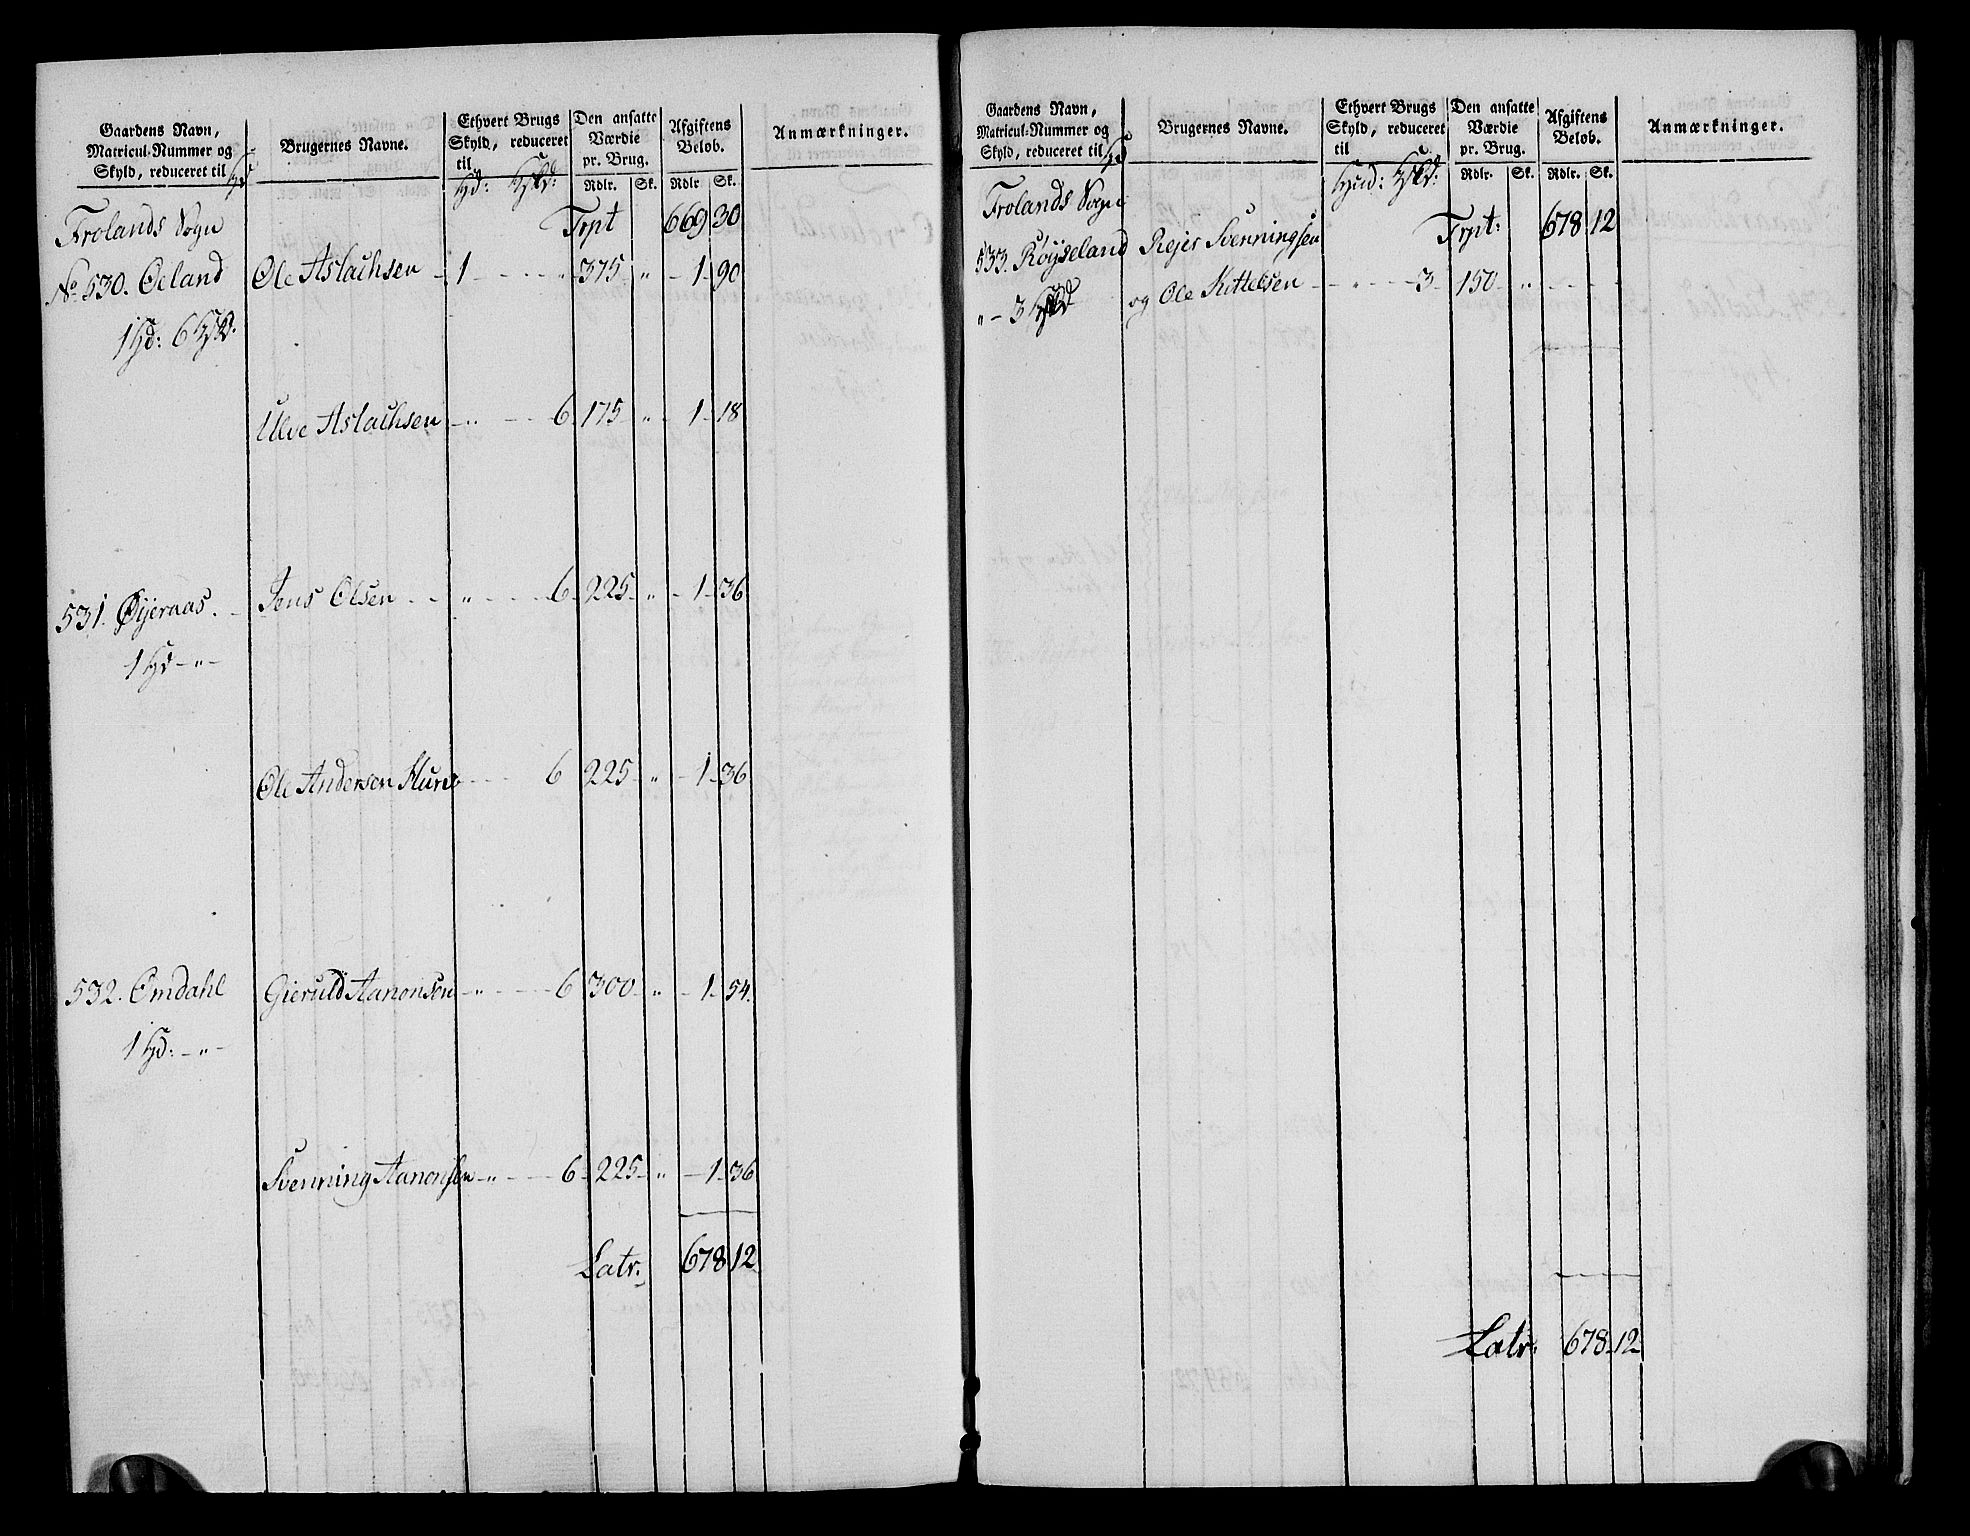 Gaardens Navn, Matricul-Nummer og Skyld, reduceret til Hd
Brugernes Navne.
Ethvert Brugs Skyld, reduceret til
Hd: Hskd:
Den ansatte Værdie pr. Brug.
Rdlr. Sk.
Afgiftens Beløb.
Rdlr Sk.
Anmærkninger.
Frolands Sogn Trpt 669 30
No 530. Øeland Ole Aslachsen - 1 - - - „ 375 „ - 1 - 90
1 Hd: 6 Hskd:
Ulve Aslachsen - „ - - 6 - 175 - „ - 1 - 18
531. Øyeraas. - Jens Olsen - - „ - - - 6 - 225 - „ - 1 - 36
1 Hd - „ -
Ole Andersen - - - 6 225 - „ - 1 - 36
532. Omdahl Gieruld Aanonsen - „ - - - 6 300 - „ - 1 - 54.
1 Hd: - „ -
Svenning Aanonsen - „ - - - 6 - 225 - „ - 1 - 36
Latr. 678 12
Gaardens Navn, Matricul-Nummer og Skyld, reduceret til Hd
Brugernes Navne.
Ethvert Brugs Skyld, reduceret til
Hud: Hskd:
Den ansatte Værdie pr. Brug.
Rdlr. Sk.
Afgiftens Beløb.
Rdlr. Sk.
Anmærkninger.
Frolands Sogn Trpt: 678 12
533. Røyseland Rejer Svenningsen
„ - 3 Hskd og Ole Kittelsen - - „ - - - 3 - 150 - „ - - -
Latr. 678 12